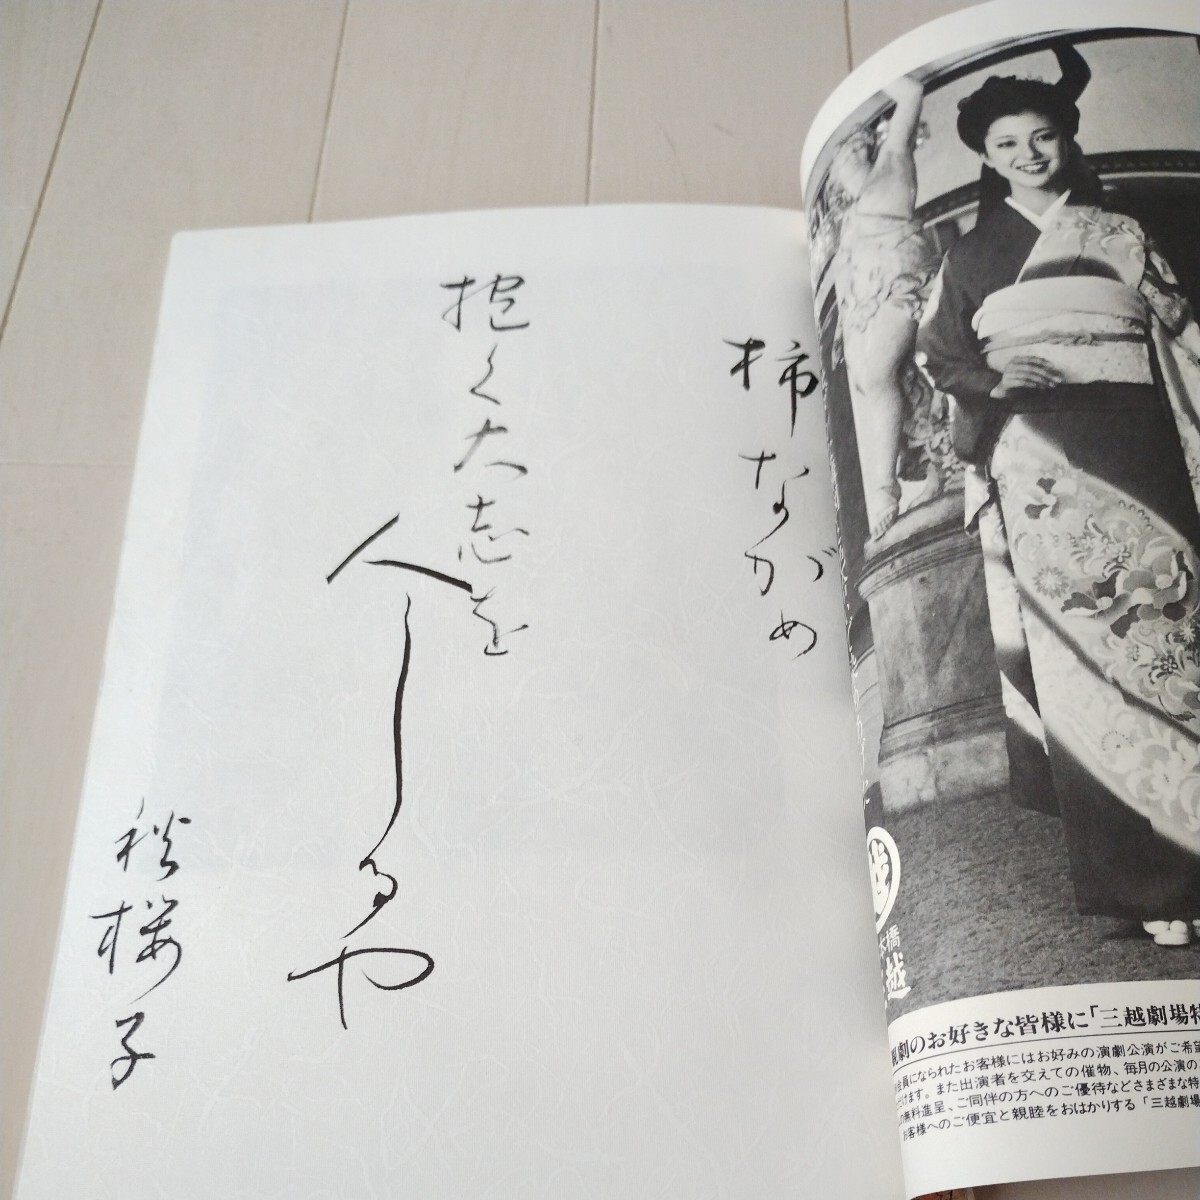 柿ながめ
抱く大志を
人しるや
秋櫻子
越
観劇のお好きな皆様に「三越劇場特
会員になられたお客様にはお好みの演劇公演がご希望
だけます。また出演者を交えての催物、毎月の公演の
の無料進呈、ご同伴の方へのご優待などさまざまな特
お客様へのご便宜と親睦をおはかりする「三越劇場